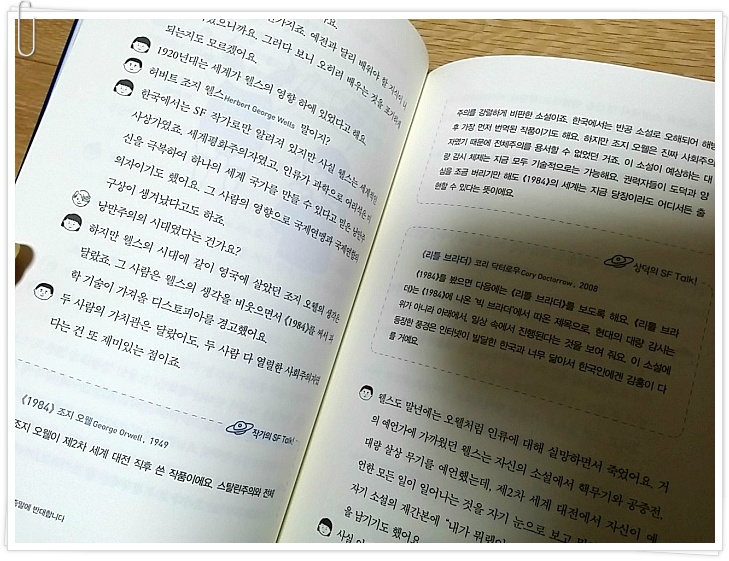 있으니까요. 그러다 보니 오히려 배우는 것을 포기하게
되는지도 모르겠어요.
1920년대는 세계가 웰스의 영향 하에 있었다고 해요.
허버트 조지 웰스Herbert George Wells 말이지?
한국에서는 SF 작가로만 알려져 있지만 사실 웰스는 세계적인
사상가였죠. 세계평화주의자였고, 인류가 과학으로 어리석은
신을 극복하여 하나의 세계 국가를 만들 수 있다고 믿은 낭만주
의자이기도 했어요. 그 사람의 영향으로 국제연맹과 국제연합의
구상이 생겨났다고도 하죠.
낭만주의의 시대였다는 건가요?
하지만 웰스의 시대에 같이 영국에 살았던 조지 오웰의 생각은
달랐죠. 그 사람은 웰스의 생각을 비웃으면서 《1984》를 써서 과
학 기술이 가져올 디스토피아를 경고했어요.
두 사람의 가치관은 달랐어도, 두 사람 다 열렬한 사회주의자였
다는 건 또 재미있는 점이죠.
작가의 SF Talk!
《1984》 조지 오웰George Orwell, 1949
조지 오웰이 제2차 세계 대전 직후 쓴 작품이에요. 스탈린주의와 전체
반대합니다
주의를 강렬하게 비판한 소설이죠. 한국에서는 반공 소설로 오해되어 해방
후 가장 먼저 번역된 작품이기도 해요. 하지만 조지 오웰은 진짜 사회주의
자였기 때문에 전체주의를 용서할 수 없었던 거죠. 이 소설이 예상하는 대
량 감시 체제는 지금 모두 기술적으로는 가능해요. 권력자들이 도덕과 양
심을 조금 버리기만 해도 《1984》의 세계는 지금 당장이라도 어디서든 출
현할 수 있다는 뜻이에요.
상덕의 SF Talk!
《리틀 브라더》 코리 닥터로우Cory Doctorow, 2008
《1984》를 봤으면 다음에는 《리틀 브라더》를 보도록 해요. 《리틀 브라
더》는 《1984》에 나온 '빅 브라더'에서 따온 제목으로, 현대의 대량 감시는
위가 아니라 아래에서, 일상 속에서 진행된다는 것을 보여 줘요. 이 소설에
등장한 풍경은 인터넷이 발달한 한국과 너무 닮아서 한국인에겐 감흥이 다
를 거예요.
웰스도 말년에는 오웰처럼 인류에 대해 실망하면서 죽었어요. 거
의 예언가에 가까웠던 웰스는 자신의 소설에서 핵무기와 공중전,
대량 살상 무기를 예언했는데, 제2차 세계 대전에서 자신이 예
언한 모든 일이 일어나는 것을 자기 눈으로 보고
자기 소설의 재간본에 "내가 뭐랬어
을 남기기도 했어요.
사실